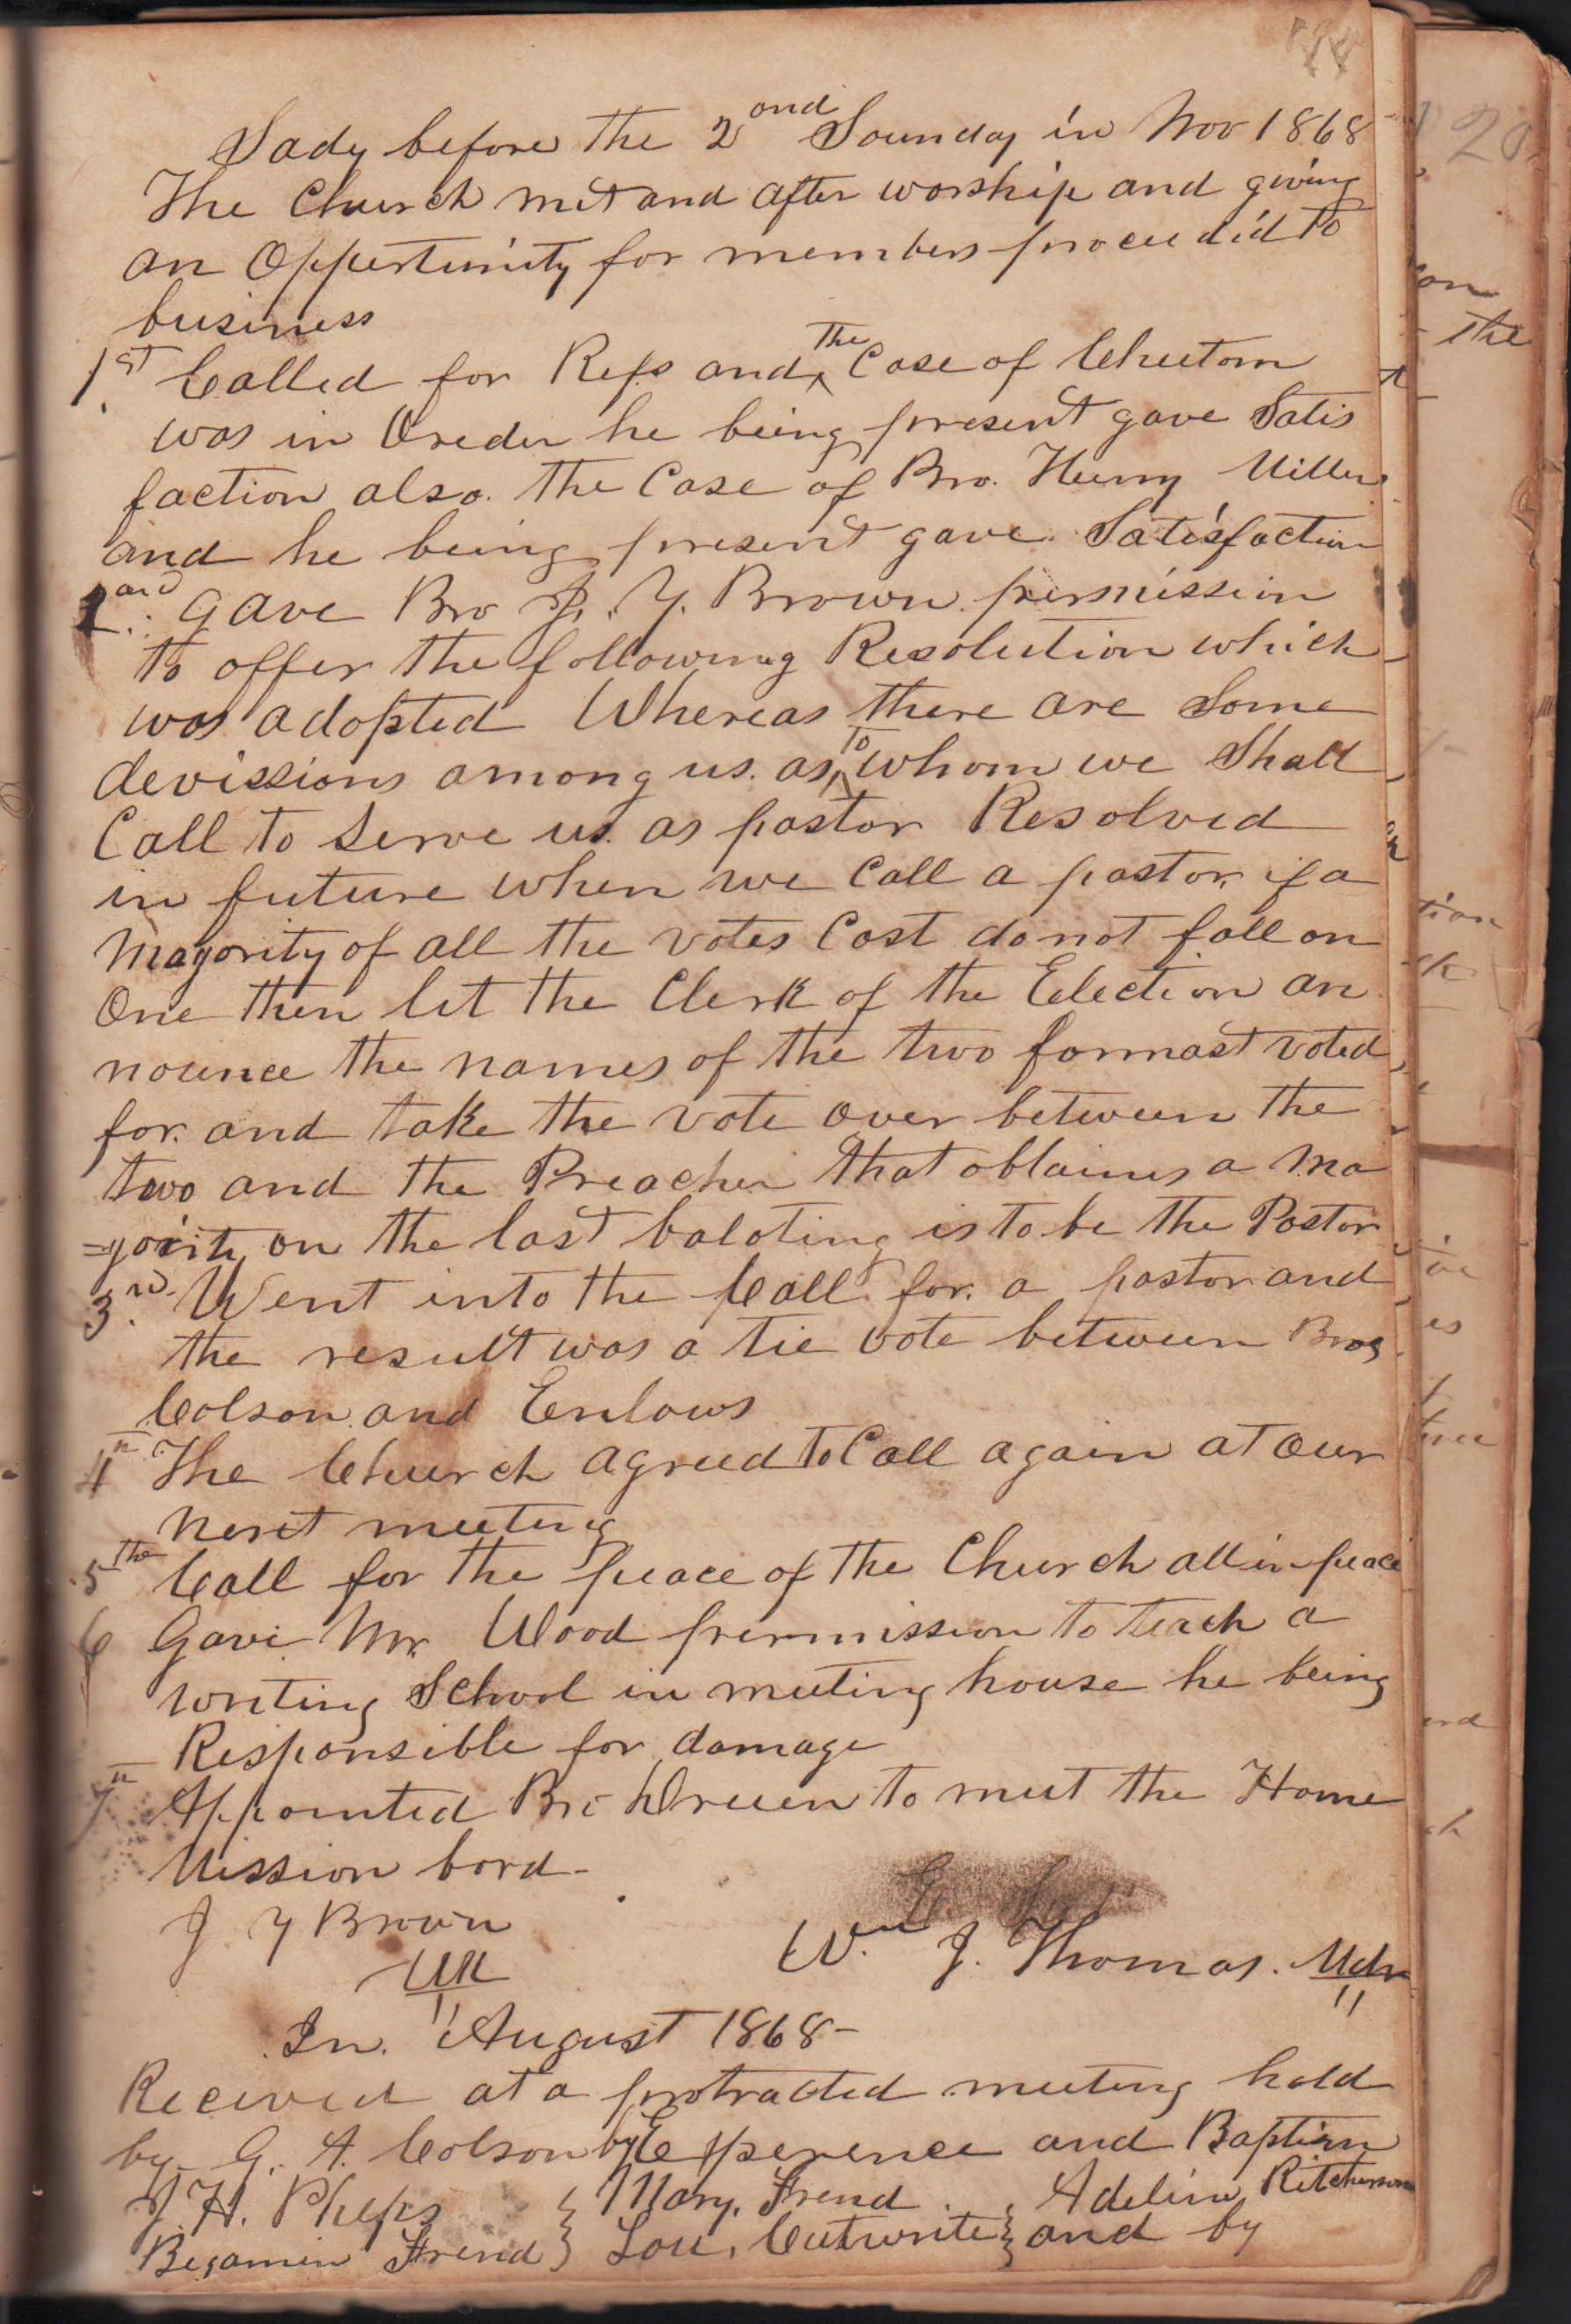 Sady before the 2ond Sounday in Nov 1868
The Church met and after worship and giving
an Oppertunity for members proceedid to
business
1st Called for Refs and the Case of Cheetom
was in Oreder he being present gave Satis
faction also. The Case of Bro. Henry Miller
and he being present gave Satisfaction
2and gave Bro J. Y. Brown permission
to offer the following Resolution which
was adopted Whereas there are Some
devissions among us. as to whom we Shall
Call to Serve us. as pastor Resolved
in future when we Call a pastor if a
Magority of all the votes Cast do not fall on
One then let the Clerk of the Election an
nounce the names of the two formast voted
for. and take the vote over between the
two and the Preacher that obtaines a Ma
=gority on the last baloting is to be the Pastor
3rd. Went into the Call for. a pastor and
the result was a tie vote between Bros
Colson and Enlows
4th The Church agreed to Call again at Our
next meeting
5the Call for the peace of the Church all in peace
6 Gave Mr. Wood permission to teach a
writing School in meeting house he being
Responsible for damage
7th Appointed Bro Druen to meet the Home
Mission bord-
J Y Brown
Wm J. Thomas. Mdr
Clk
In. August 1868-
Received at a protracted meeting held
by G. A. Colson by Experence and Baptism
J. H. Phelps } Mary, Frend } Adeline Ritcherson
Begamin Frend } Lou, Cutwrite } and by
20
on
the
tion